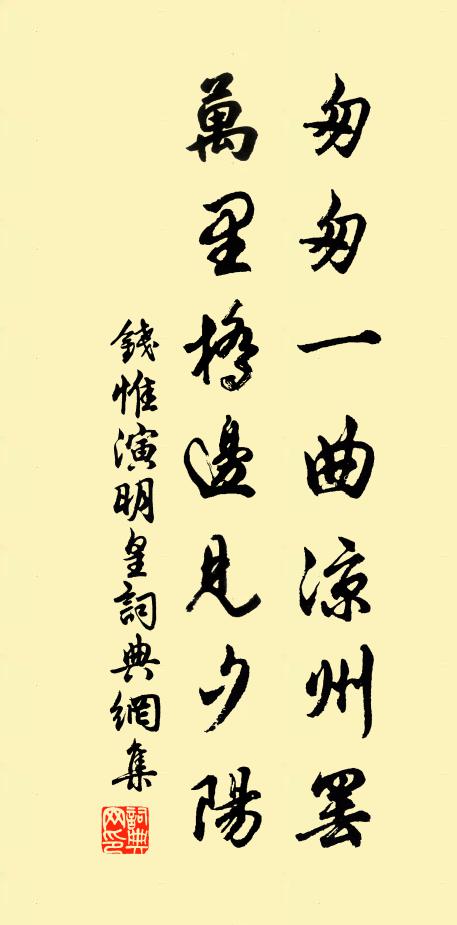 匆匆一曲涼州罢
萬里橋邊見夕陽
錢惟演明皇詞典網集
詞典网印